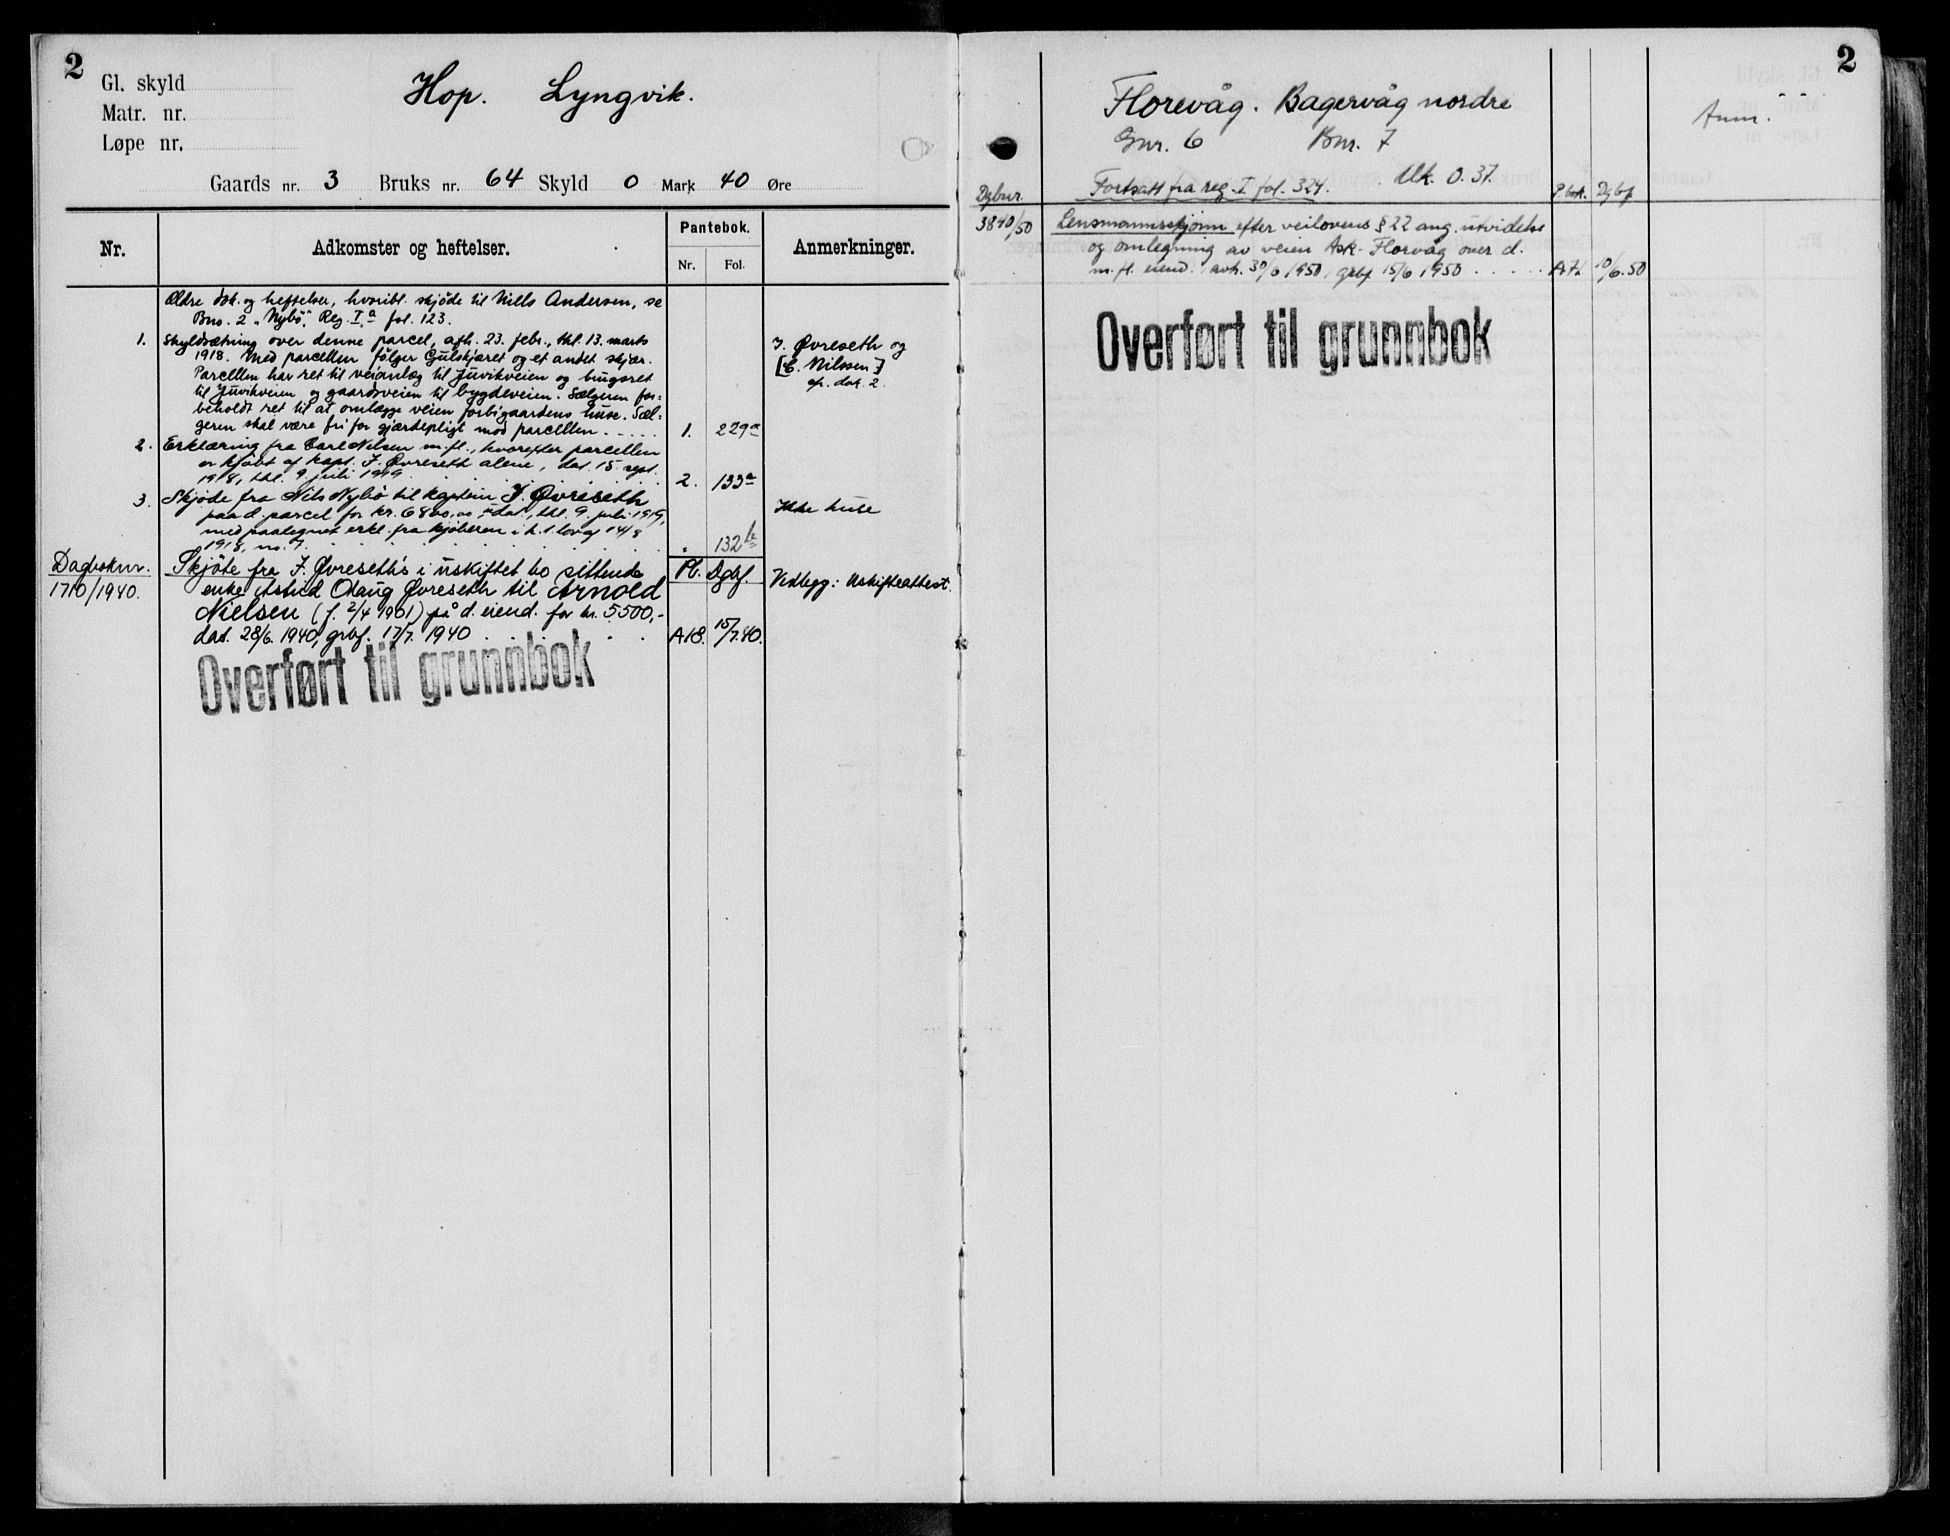 2
Gl. skyld
Matr. nr.
Løpe nr.
Hop. Lyngvik.
Gaards nr. 3 Bruks nr. 64 Skyld 0 Mark 40 Øre
Nr.
Adkomster og heftelser.
Pantebok.
Nr. Fol.
Anmerkninger.
Ældre dok. og heftelser, hvoribl. skjøde til Nills Andersen, se
Bno. 2 "Nybö", Reg. I a fol. 123.
1. Skyldsætning over denne parcel, afh. 23. febr., thl. 13. marts
1918. Med parcellen følger Gulskjæret og et andet skjær.
Parcellen har ret til veianlæg til Juvikveien og bugsret
til Juvikveien og gaardsveien til bygdeveien. Sælgeren for=
beholdt ret til at omlægge veien forbi gaardens huse. Sæl=
geren skal være fri for gjærdepligt mod parcellen . . . . . 1. 229a
J. Øvreseth og
[C. Nilssen]
cfr. dok. 2.
2. Erklæring fra Carl Nilsen m.fl., hvorefter parcellen
er kjøbt af kapt. J. Øvreseth alene, dat. 15. sept.
1918, thl. 9. juli 1919. . . . . . . 2. 133a
3. Skjøde fra Nils Nybö til kaptein J. Øvreseth
paa d. parcel for kr. 6800,00, dat., thl. 9. juli 1919,
med paategnet erkl. fra kjøberen i h. t. lov af 14/8
1918, no. 7. . . . . . . " 132b
Ikke huse
Dagboknr.
1710/1940.
Skjøte fra J. Øvreseth's i uskiftet bo sittende
enke Astrid Øvreseth til Arnold
Nielsen (f. 2/4 1901) på d. eiend. for kr. 5500,-
dat. 28/6. 1940, grbf. 17/7. 1940 . . . . .
Pb. Dgbf.
A18. 15/7.40.
Vedlegg: Uskifteattest.
Overført til grunnbok
2
Florevåg. Bagervåg nordre
Gnr. 6 Bnr. 7
Fortsatt fra reg. I fol. 324. Mk. 0.37.
Dgbnr.
P. bok. Dgbf
Anm.
3840/50 Lensmannsskjønn efter veilovens § 22 ang. utvidelse
og omlegning av veien Ask - Florvåg over d.
m. fl. eiend. avh. 1950, grbf 15/6 1950 . . . . . 10/6.50
Overført til grunnbok